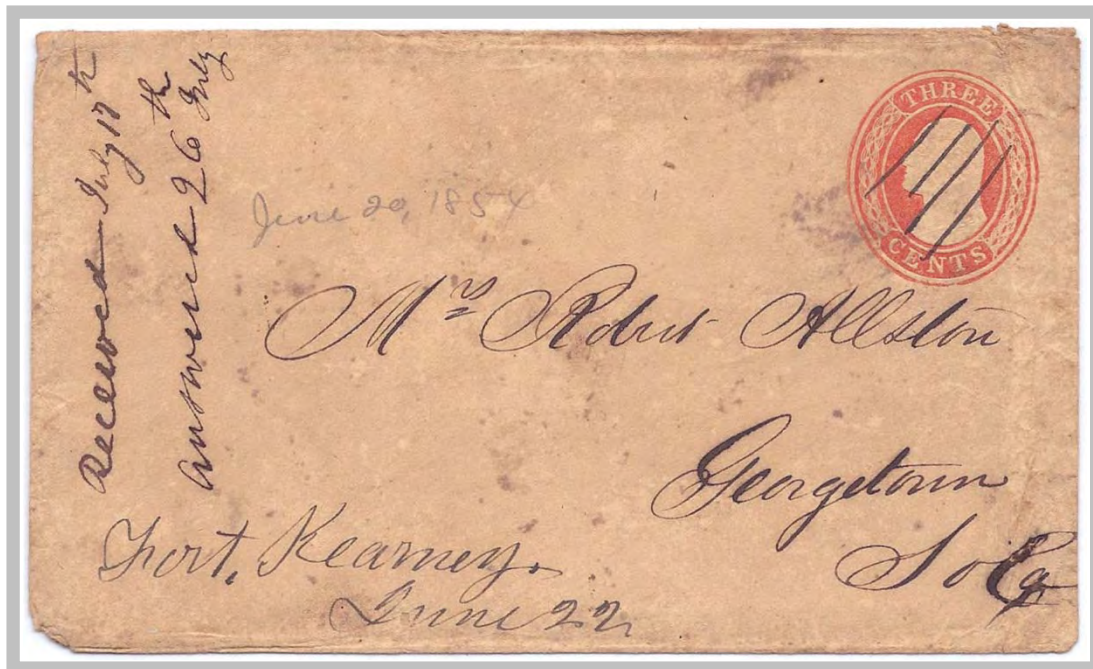 Received July 17th
answered 26th July
June 20, 1854
THREE
CENTS
Mrs Robert Allston
Georgetown
So Ca
Fort, Kearney.
June 22